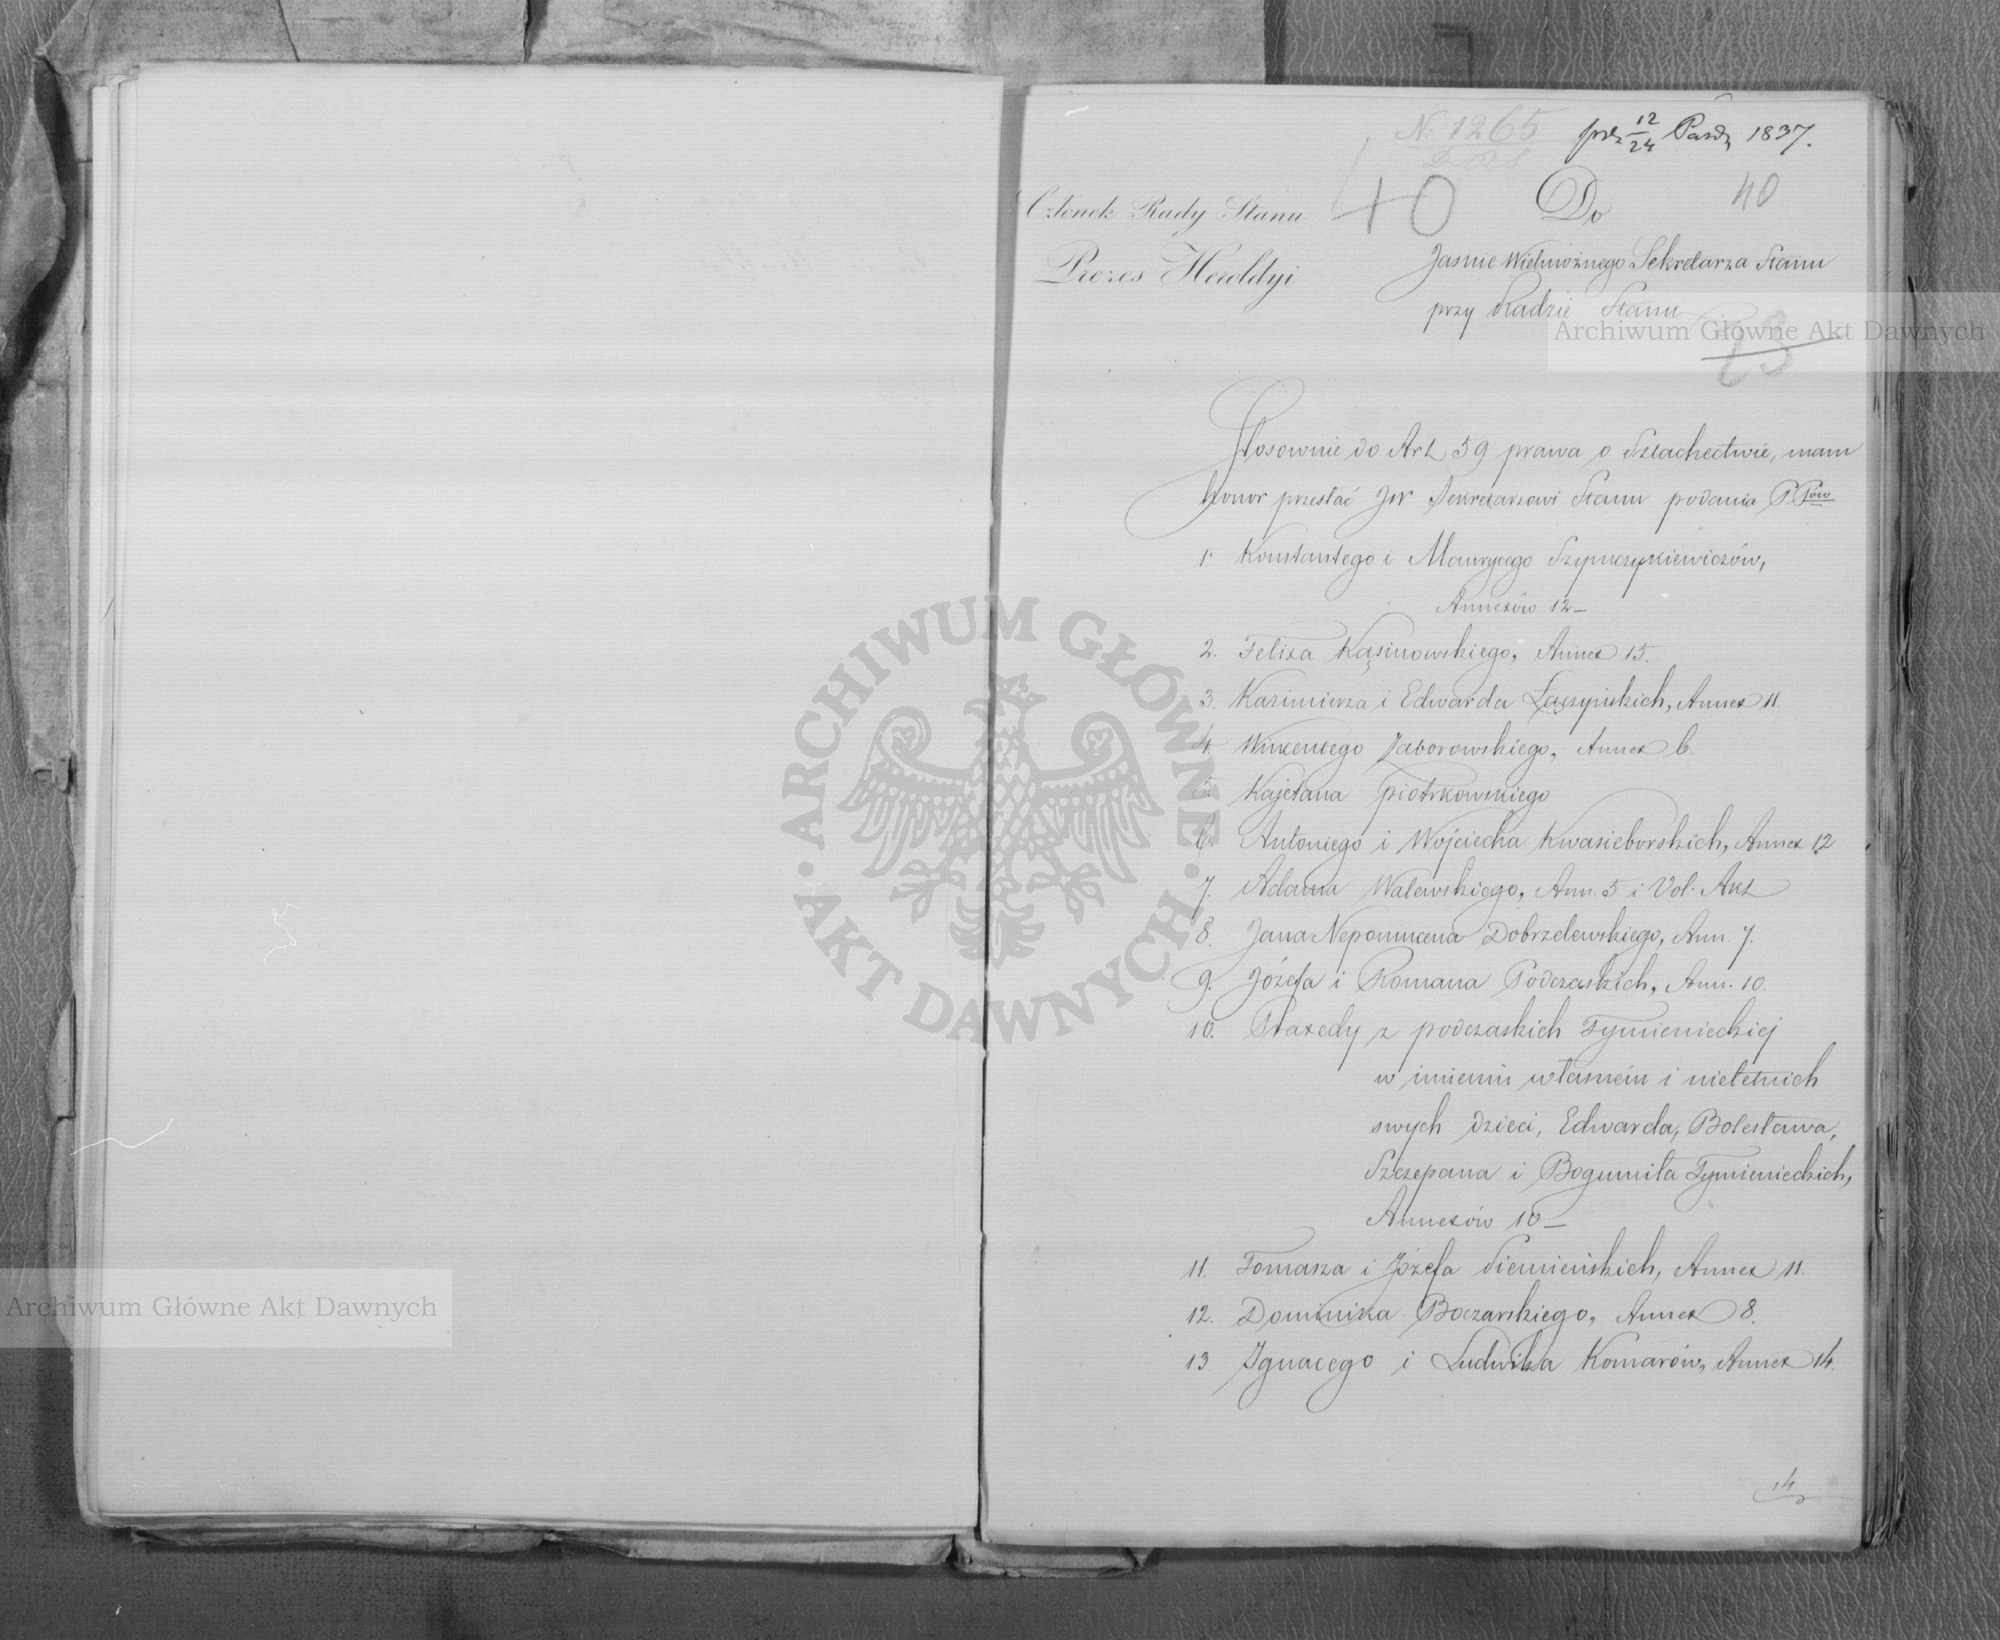 N. 1265
prz 12/24 Paźdz 1837.
40
Do
40
Członek Rady Stanu
Prezes Heroldyi
Jaśnie Wielmożnego Sekretarza Stanu
przy Radzie Stanu
Archiwum Główne Akt Dawnych
Stosownie do Art 59 prawa o Szlachectwie, mam
honor przesłać JW Sekretarzowi Stanu podania PPów
1. Konstantego i Maurycego Szymczykiewiczów,
Annexów 12 –
2. Felixa Kąsinowskiego, Annex 15.
3. Kazimierza i Edwarda Łączyńskich, Annex 11.
4. Wincentego Jaborowskiego, Annex 6.
5. Kajetana Piotrkowskiego
6. Antoniego i Wojciecha Kwasieborskich, Annex 12
7. Adama Walewskiego, Ann. 5 i Vol. Akt
8. Jana Nepomucena Dobrzelewskiego, Ann. 7.
9. Józefa i Romana Podczaskich, Ann. 10.
10. Praxedy z podczaskich Tymienieckiej
w imieniu własném i nieletnich
swych dzieci, Edwarda, Bolesława,
Szczepana i Bogumiła Tymienieckich,
Annexów 10 –
11. Tomasza i Józefa Siemieńskich, Annex 11.
12. Dominika Boczarskiego, Annex 8.
13. Ignacego i Ludwika Komarów, Annex 14.
14
ARCHIWUM GŁÓWNE
AKT DAWNYCH
Archiwum Główne Akt Dawnych